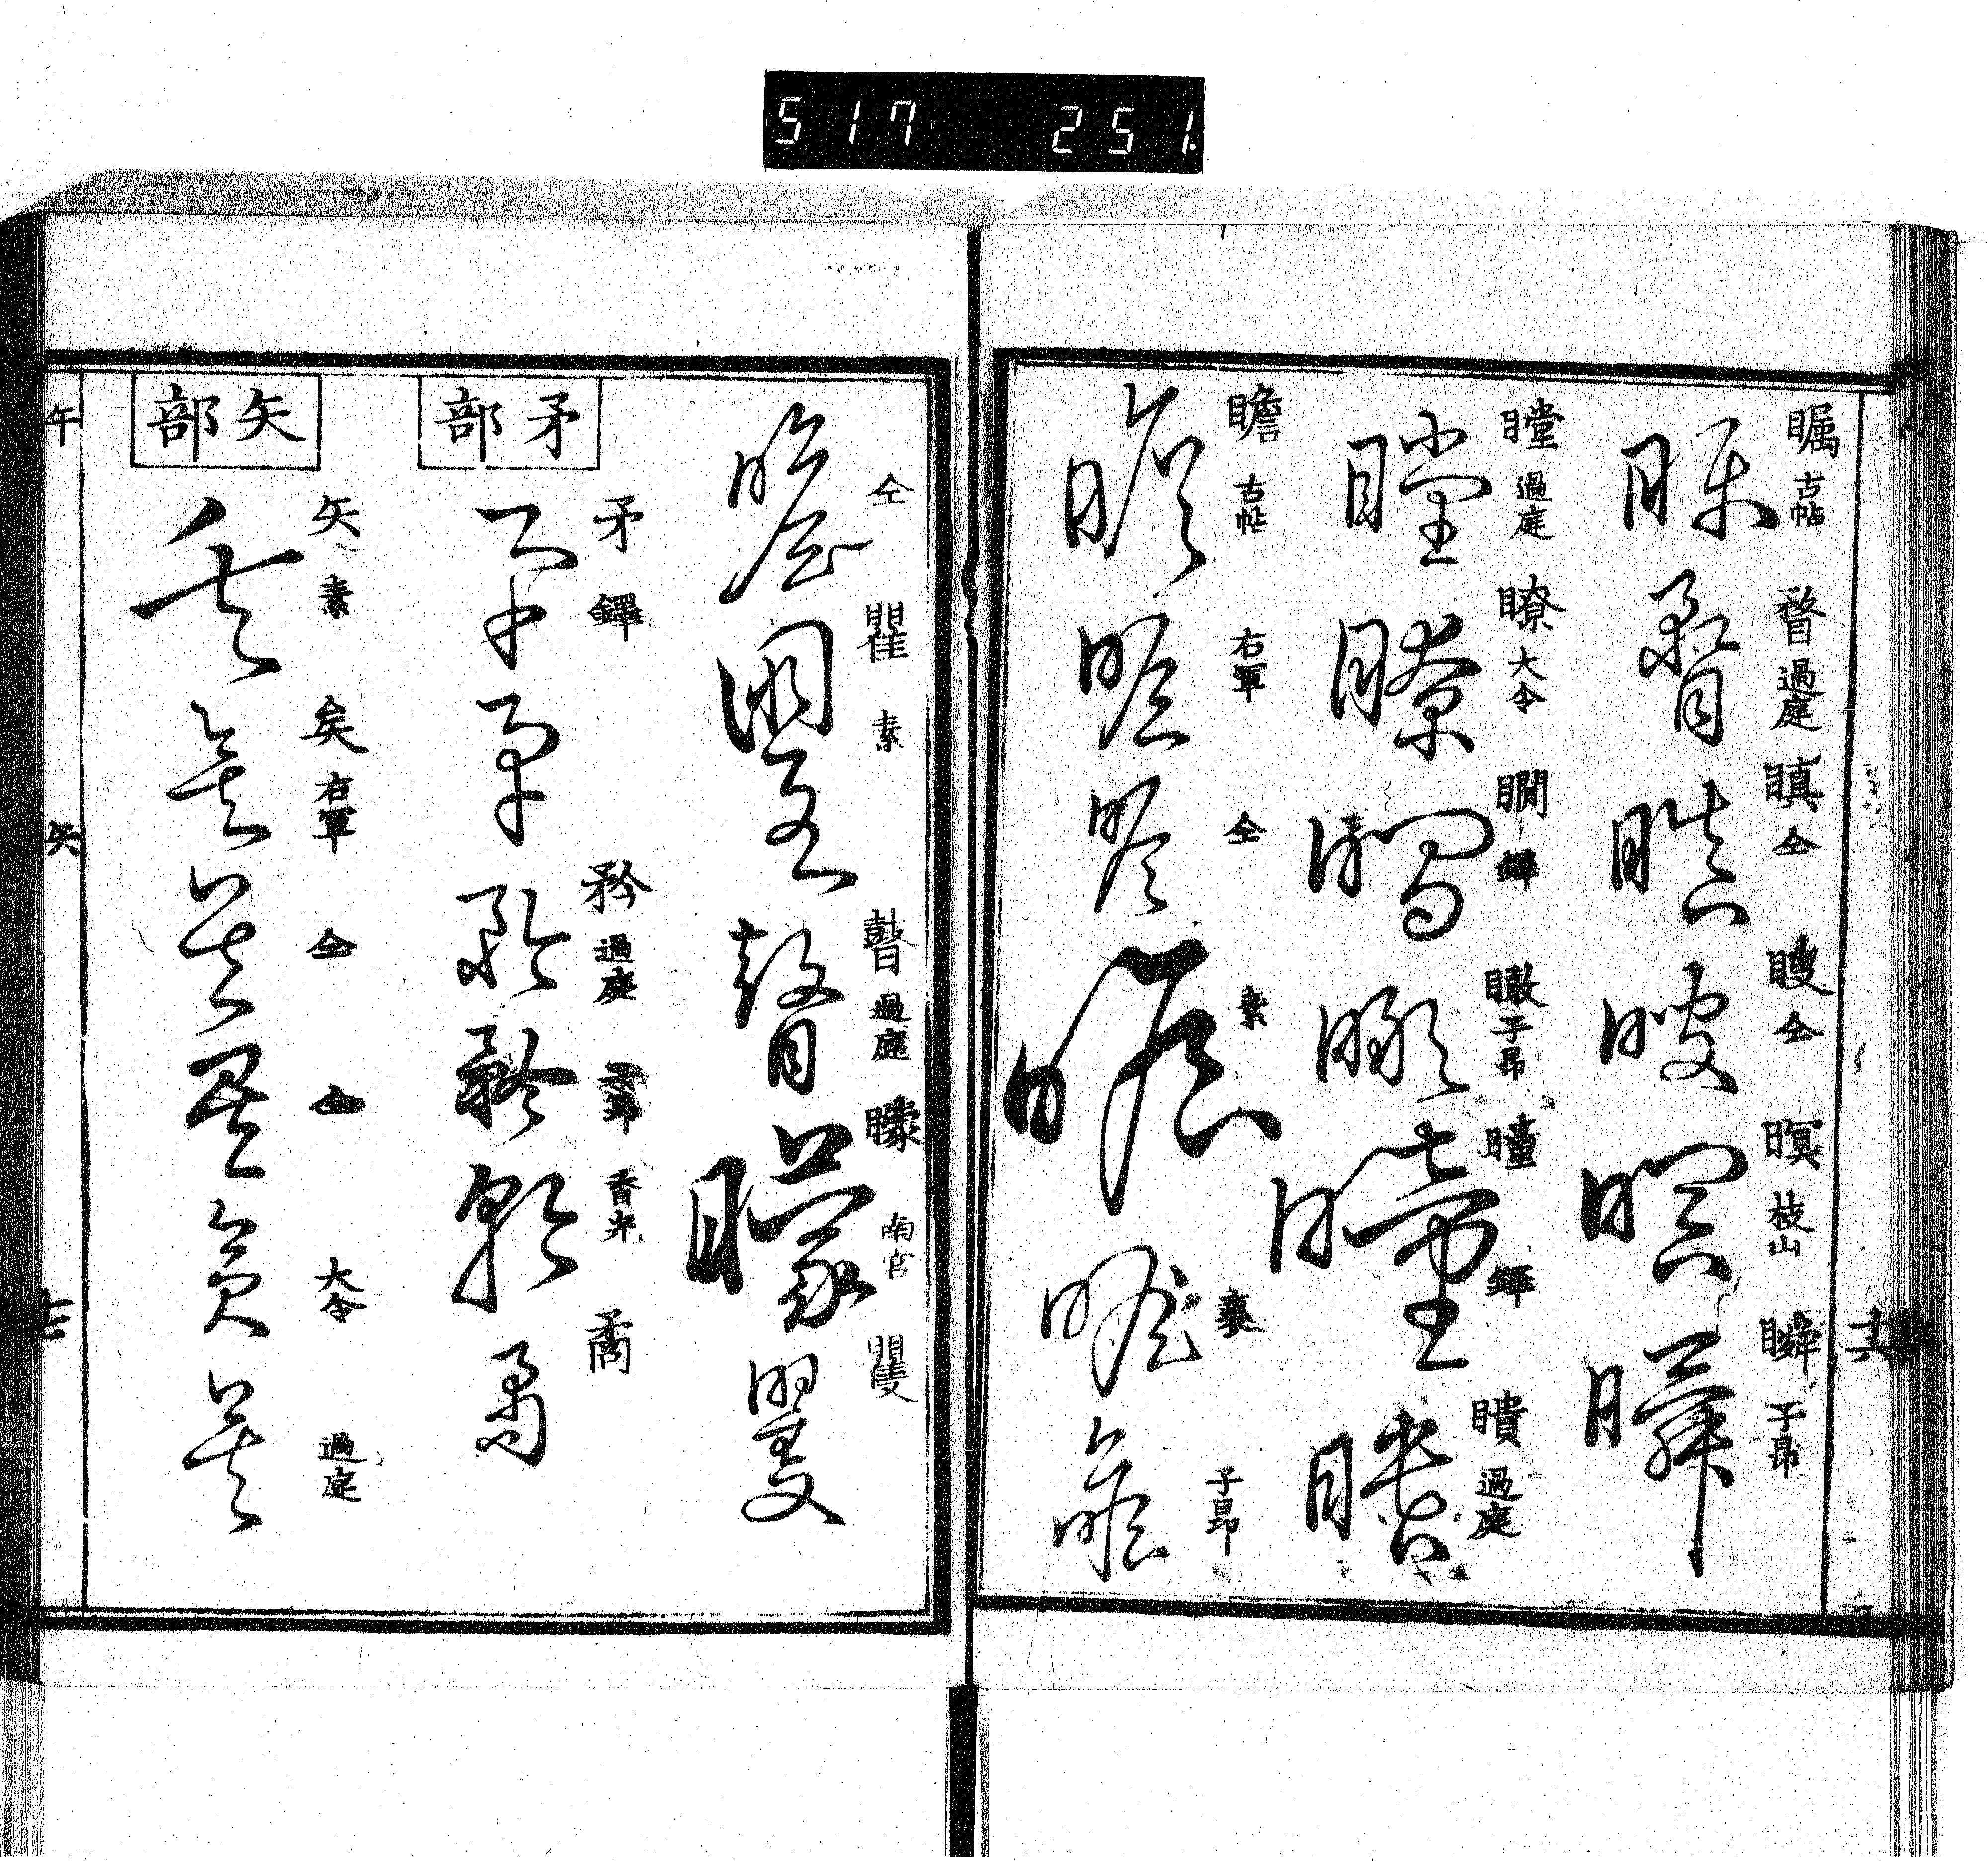 517 251.
矚 古帖 瞀 過庭 瞋 仝 瞍 仝 瞑 枝山 瞬 子昂
瞠 過庭 瞭 大令 瞷 鐸 瞰 子昂 瞳 鐸 瞶 過庭
瞻 古帖 右軍 仝 素 襄 子昂
仝 瞿 素 瞽 過庭 矇 南宮 矍
矛部
矛 鐸 矜 過庭 香光 矞
矢部
矢 素 矣 右軍 仝 仝 大令 過庭
午 矢